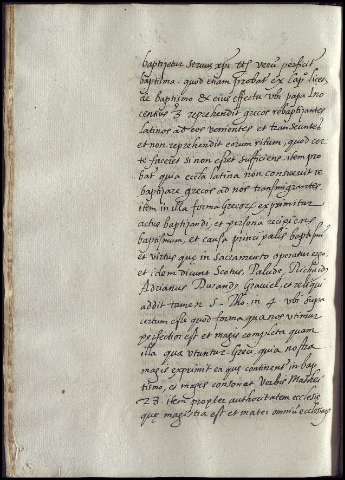 baptizetur seruus xpi etc. verũ perficit
baptismo. quod etiam probat ex cap. licet
de baptismo & eius effectu vbi papa Ino
centius 3 reprehendit grecos rebaptizantes
latinos ad eos venientes et transeuntes
et non reprehendit eorum ritum, quod cer
te faceret si non esset sufficiens. item pro
bat quia ecclã latina non consueuit re
baptizare grecos ad nos transmigrantes
item in illa forma Grecorũ exprimitur
actus baptizandi, et persona recipiens
baptismum, et causa principalis baptismi
et virtus que in Sacramento operatur ergo
et idem dicunt Scotus, Palude, Richardꝰ,
Adrianus Durandꝰ Gabriel, et aliqui
addit tamen S. Tho. in 4 vbi supra
certum esse quod forma qua nos vtimur
perfectior est et magis completa quam
illa qua vtuntur Greci, quia nostra
magis exprimit ea que continentur in bap
tismo, et magis consonat verbis Matthei
23 item propter authoritatem ecclesie
que magistra est et mater omniũ ecclesiarũ